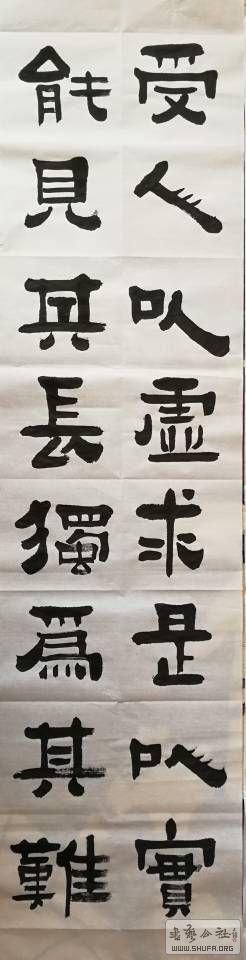 受人以虛求是以實
能見其長獨爲其難
书艺公社
WWW.SHUFA.ORG